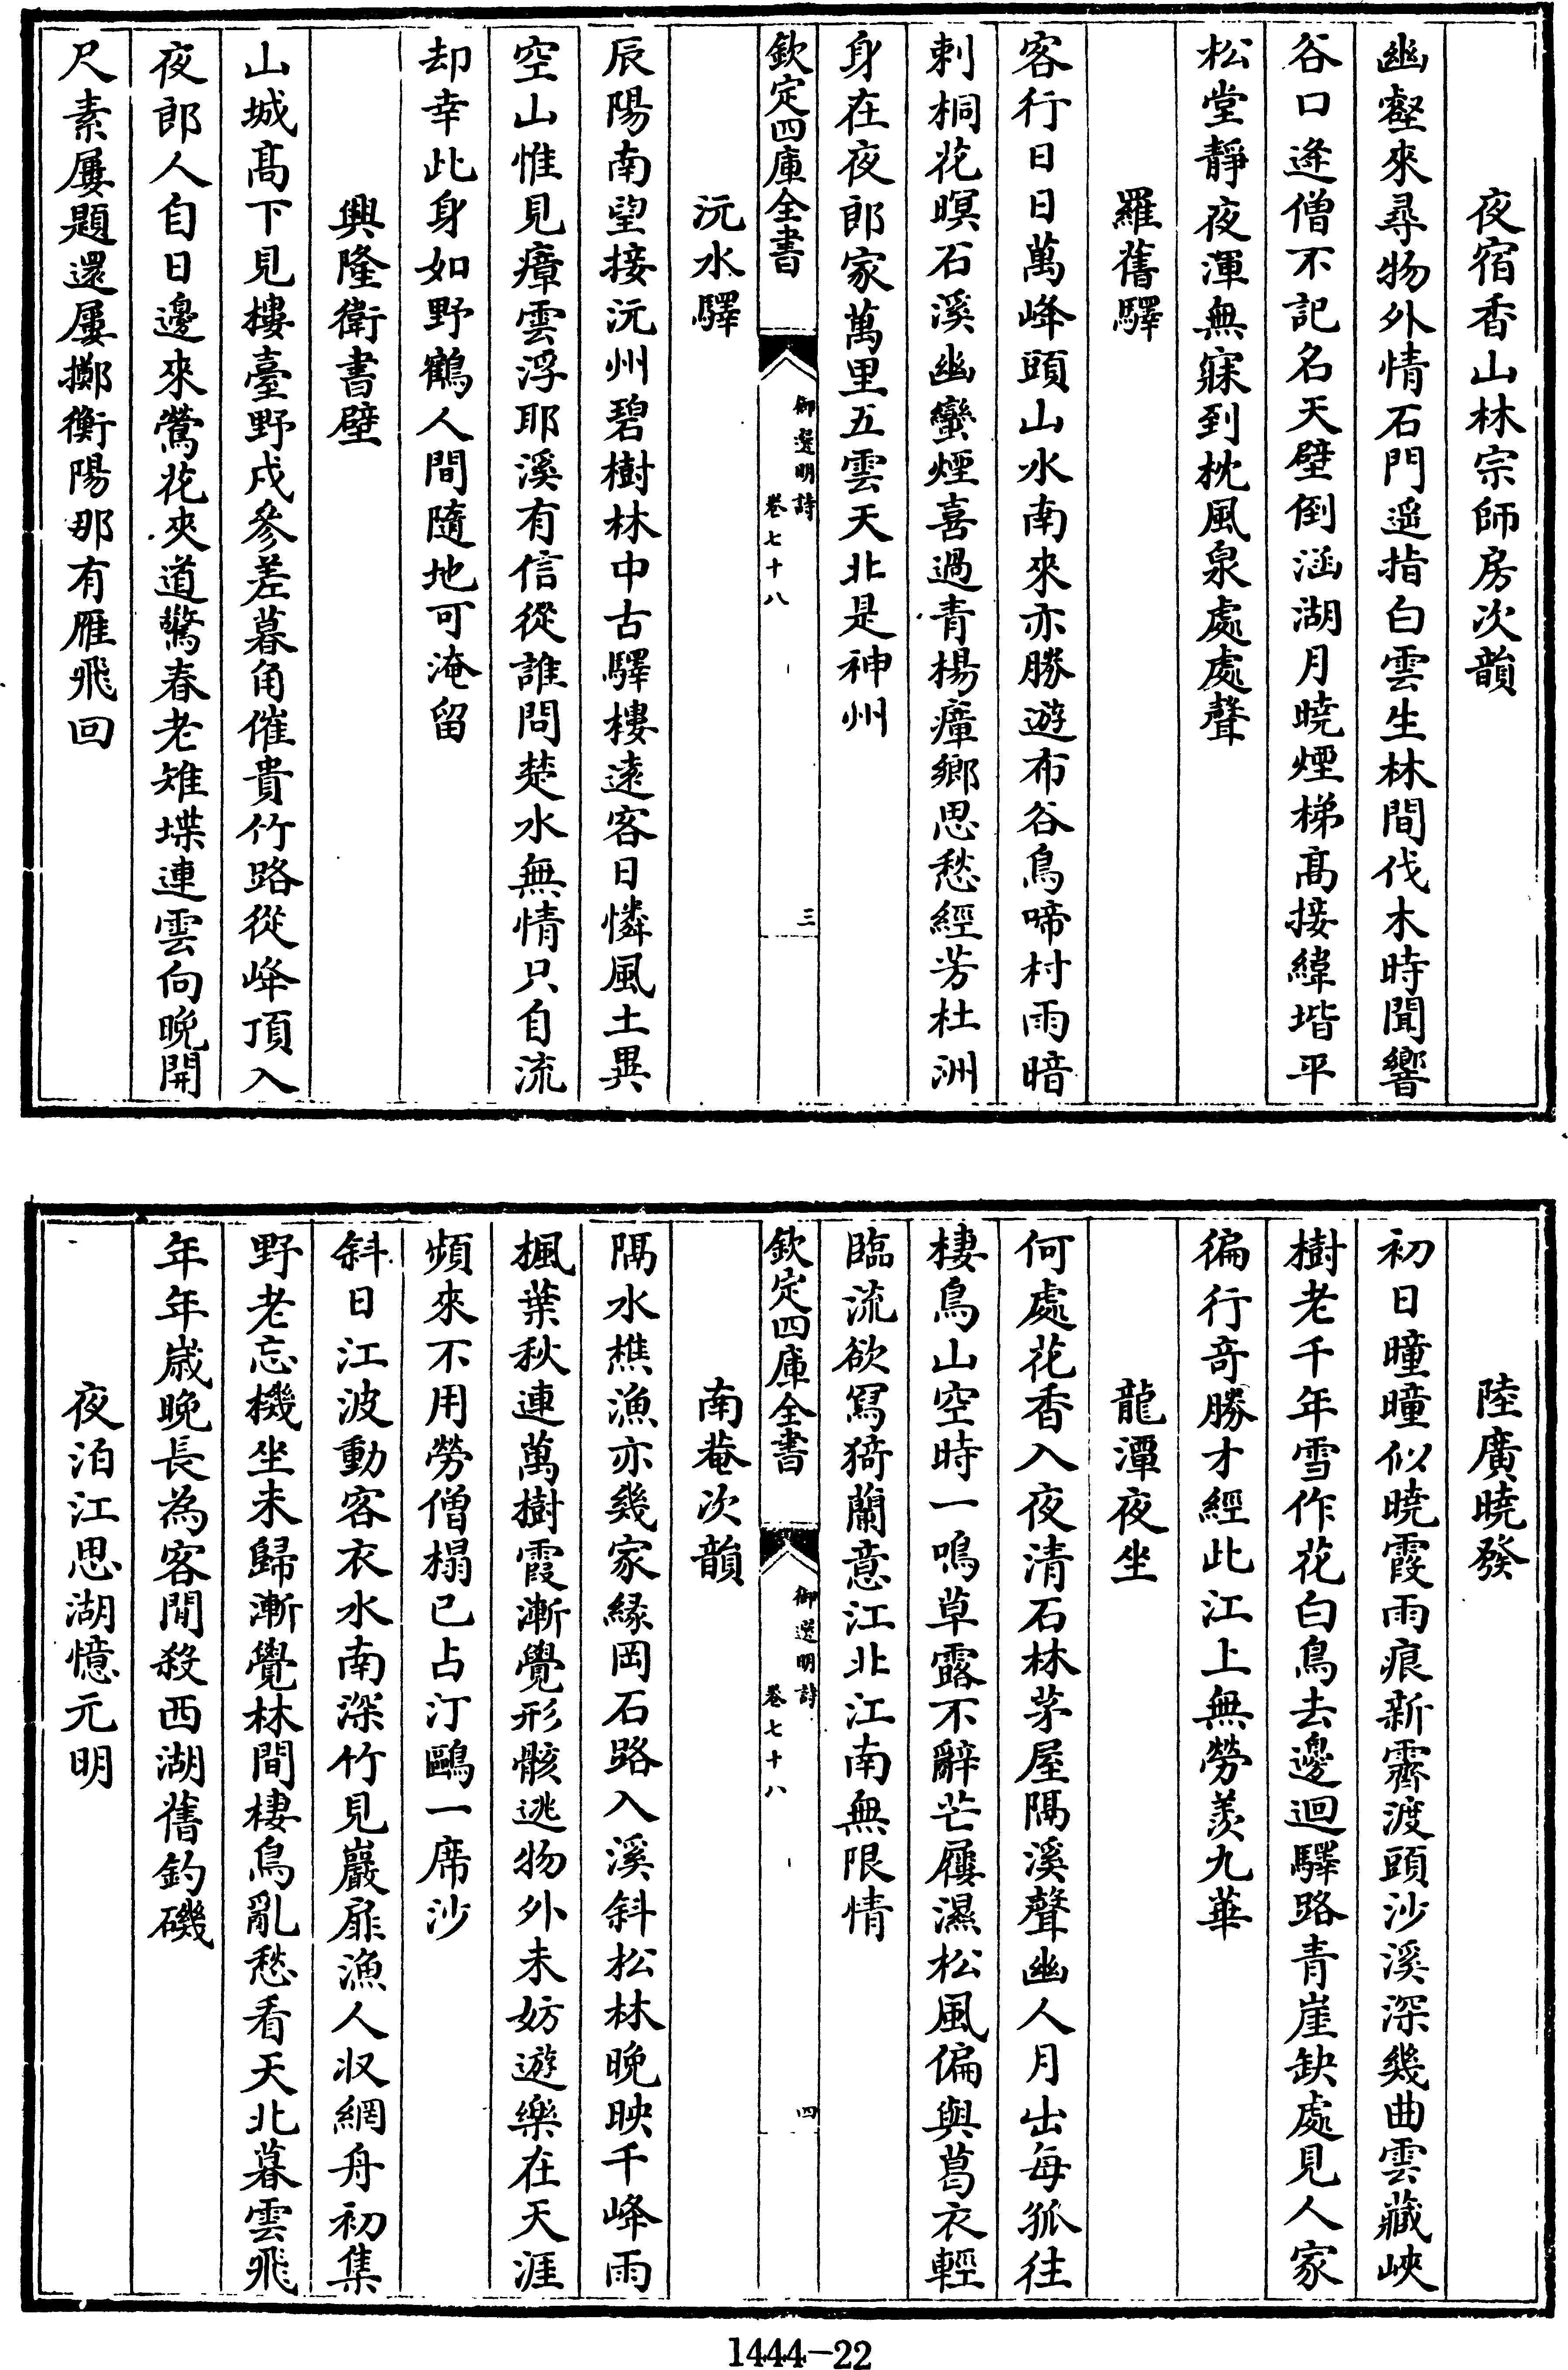 夜宿香山林宗師房次韻
幽壑來尋物外情石門遥指白雲生林間伐木時聞響
谷口逢僧不記名天壁倒涵湖月曉煙梯髙接緯堦平
松堂靜夜渾無寐到枕風泉處處聲
羅舊驛
客行日日萬峰頭山水南來亦勝遊布谷鳥啼村雨暗
刺桐花暝石溪幽蠻煙喜過青楊瘴鄉思愁經芳杜洲
身在夜郎家萬里五雲天北是神州
欽定四庫全書
御選明詩
卷七十八
三
沅水驛
辰陽南望接沅州碧樹林中古驛樓逺客日憐風土異
空山惟見瘴雲浮耶溪有信從誰問楚水無情只自流
却幸此身如野鶴人間隨地可淹留
興隆衛書壁
山城髙下見樓臺野戍參差暮角催貴竹路從峰頂入
夜郎人自日邊來鶯花夾道驚春老雉堞連雲向晩開
尺素屢題還屢擲衡陽那有雁飛回
陸廣曉發
初日曈曈似曉霞雨痕新霽渡頭沙溪深幾曲雲藏峽
樹老千年雪作花白鳥去邊迴驛路青崖缺處見人家
徧行竒勝才經此江上無勞羨九華
龍潭夜坐
何處花香入夜清石林茅屋隔溪聲幽人月出每孤往
棲鳥山空時一鳴草露不辭芒屨濕松風偏與葛衣輕
臨流欲冩猗蘭意江北江南無限情
欽定四庫全書
御選明詩
卷七十八
四
南菴次韻
隔水樵漁亦幾家緣岡石路入溪斜松林晩映千峰雨
楓葉秋連萬樹霞漸覺形骸逃物外未妨遊樂在天涯
頻來不用勞僧榻已占汀鷗一席沙
斜日江波動客衣水南深竹見巖扉漁人収網舟初集
野老忘機坐未歸漸覺林間棲鳥亂愁看天北暮雲飛
年年嵗晩長為客閒殺西湖舊釣磯
夜泊江思湖憶元明
1444-22